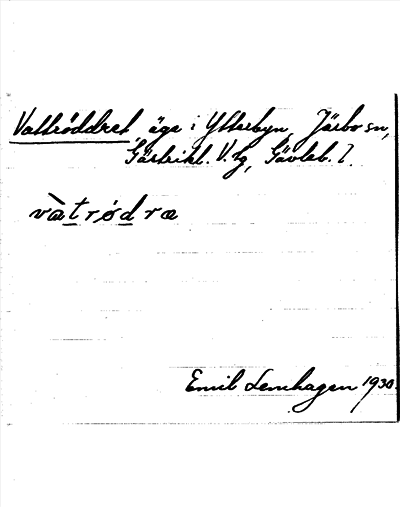 Vattröddret, äga i Ytterbyn, Järbo sn,
Gästrikl. V. tg, Gävleb. l.
vàtrødræ
Emil Lenhagen 1930.